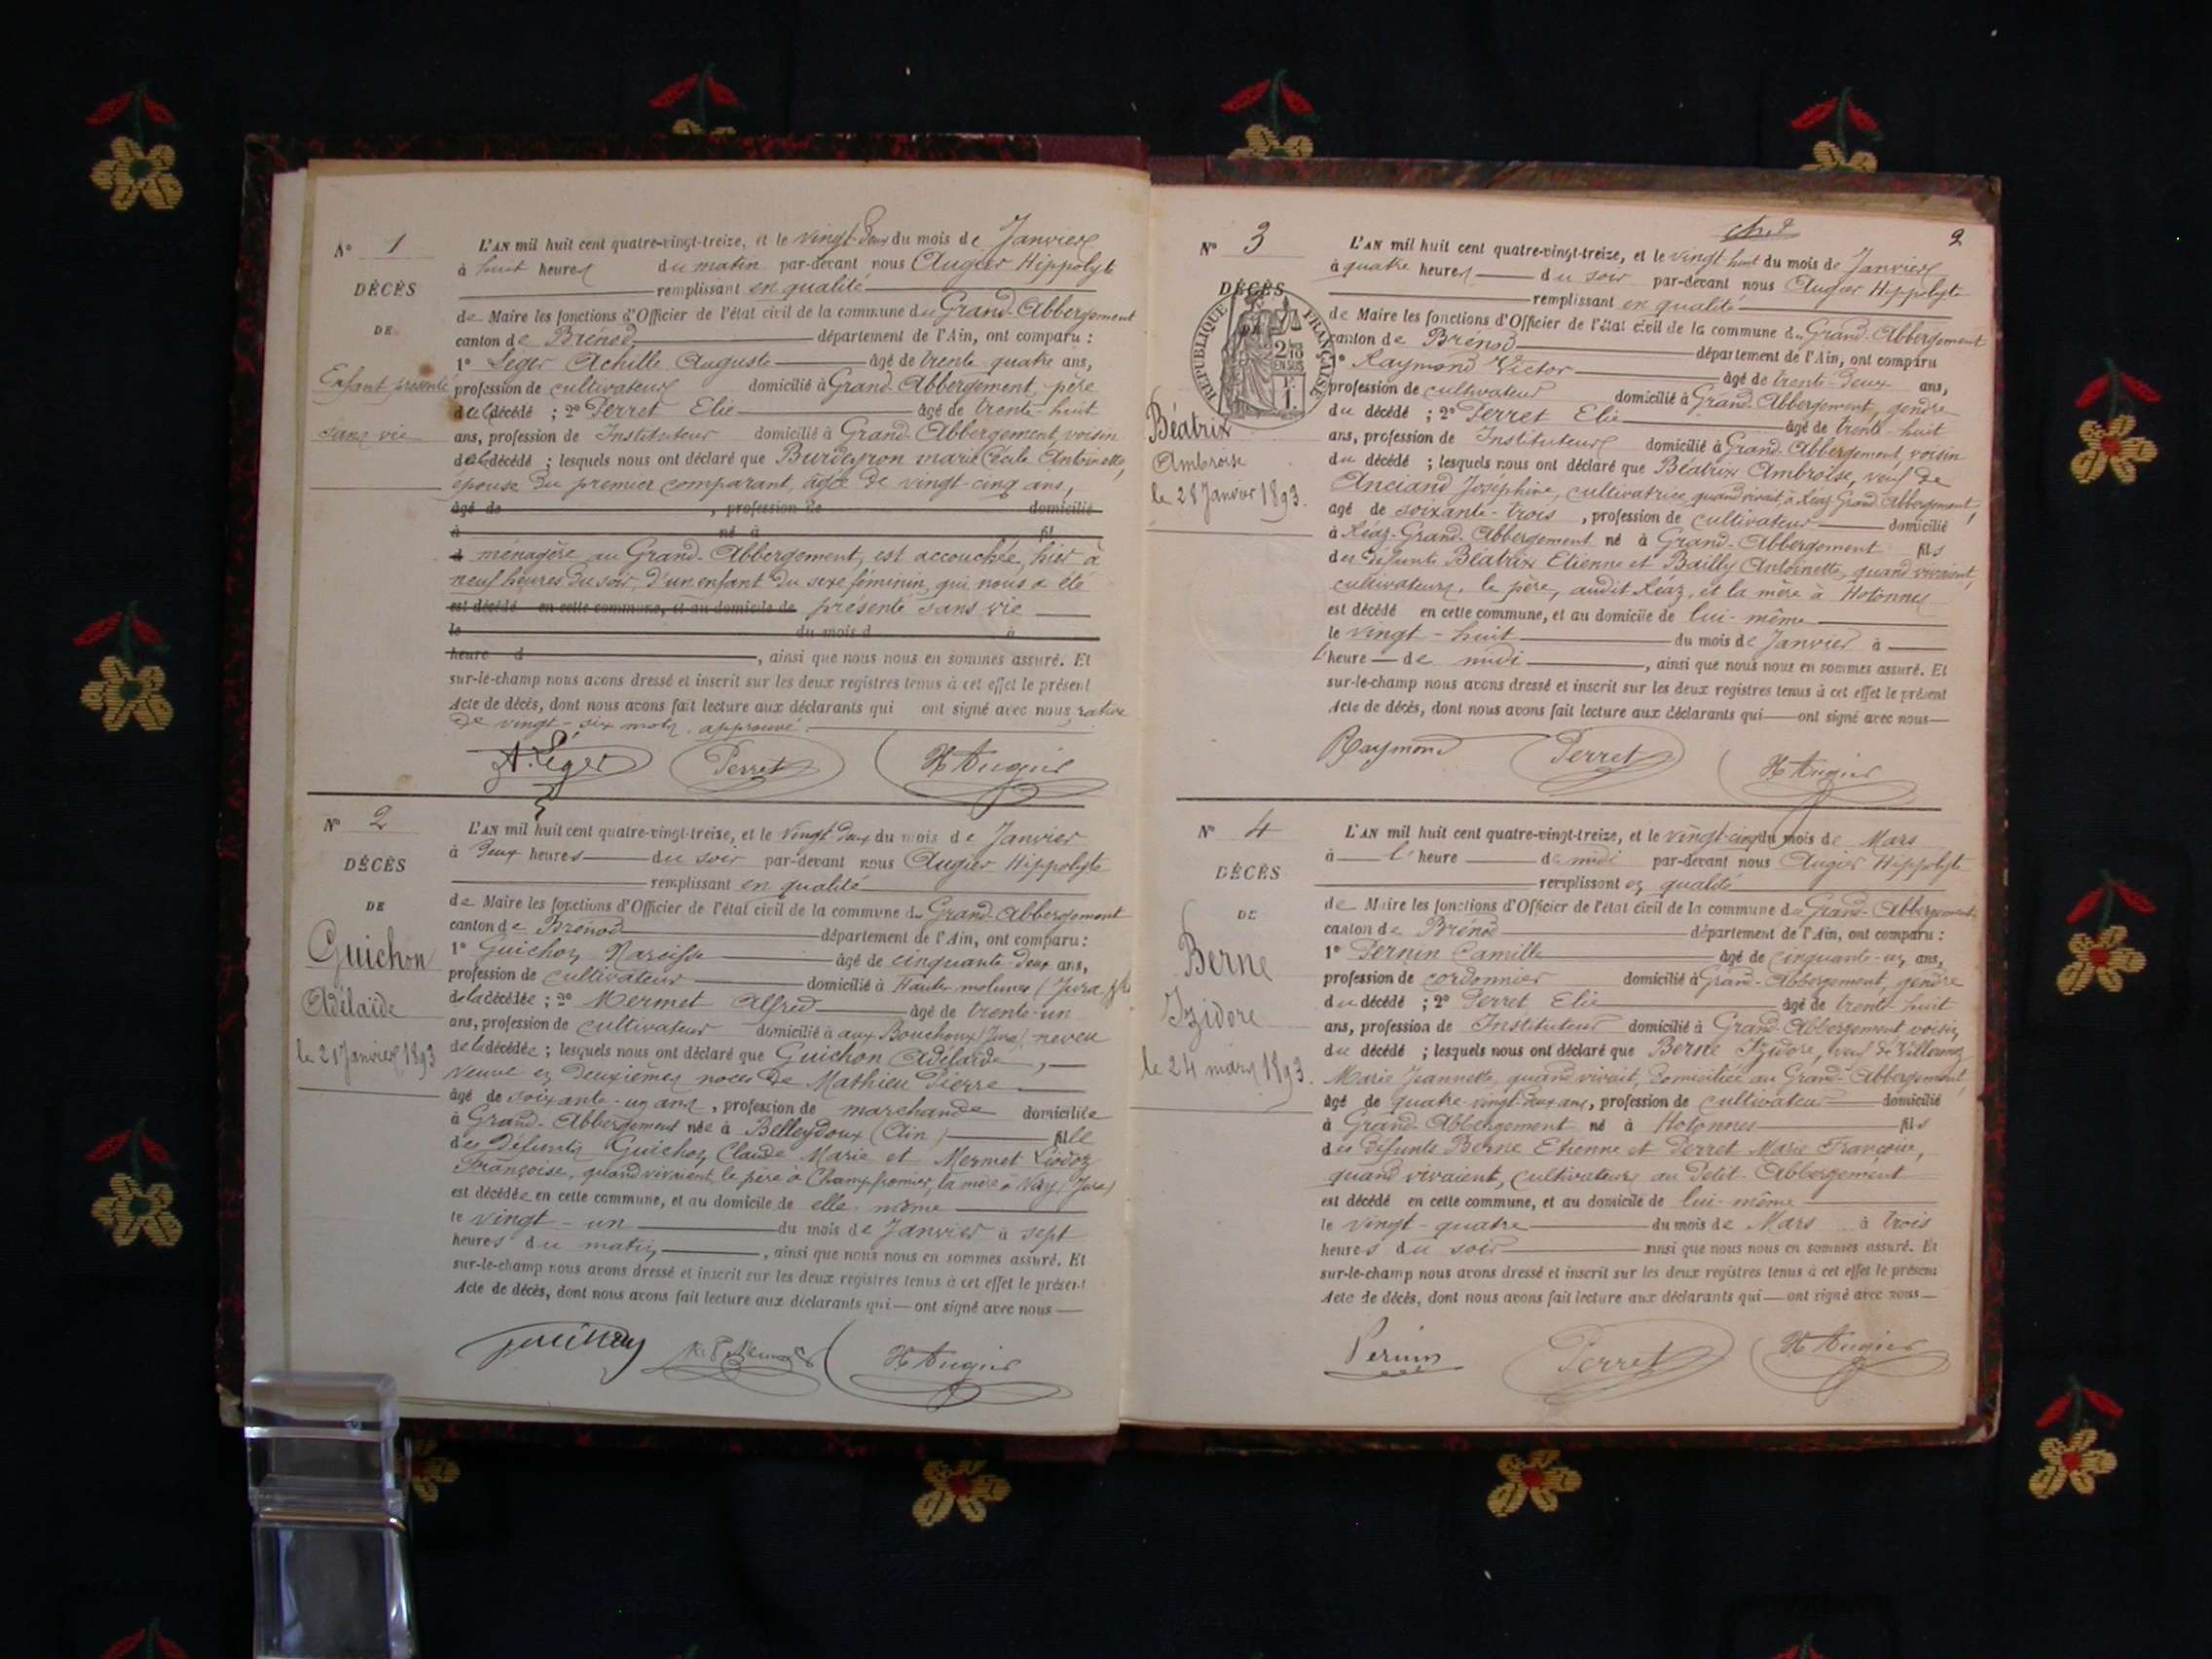 N° 1
DÉCÈS
DE
Enfant présenté
sans vie
L'AN mil huit cent quatre-vingt-treize, et le vingt-deux du mois de Janvier
à huit heures du matin par-devant nous Augier Hippolyte
remplissant en qualité
de Maire les fonctions d'Officier de l'état civil de la commune du Grand-Abbergement
canton de Brénod département de l'Ain, ont comparu :
1° Leger Achille Auguste âgé de trente quatre ans,
profession de cultivateur domicilié à Grand-Abbergement, père
décédé ; 2° Perret Elie âgé de trente-huit
ans, profession de Instituteur domicilié à Grand-Abbergement, voisin
décédé ; lesquels nous ont déclaré que Burdeyron marie Cécile Antoinette,
épouse du premier comparant, âgée de vingt-cinq ans,
âgé de , profession de domicilié
à né à fil
d ménagère au Grand-Abbergement, est accouchée, hier à
neuf heures du soir, d'un enfant du sexe féminin, qui nous a été
est décédé en cette commune, et au domicile de présenté sans vie
le du mois d à
heure d , ainsi que nous nous en sommes assuré. Et
sur-le-champ nous avons dressé et inscrit sur les deux registres tenus à cet effet le présent
Acte de décès, dont nous avons fait lecture aux déclarants qui ont signé avec nous, rature
de vingt-six mots, approuvé.
A. Léger Perret H. Augier
N° 2
DÉCÈS
DE
Guichon
Adélaïde
le 21 Janvier 1893
L'AN mil huit cent quatre-vingt-treize, et le vingt-deux du mois de Janvier
à deux heures du soir par-devant nous Augier Hippolyte
remplissant en qualité
de Maire les fonctions d'Officier de l'état civil de la commune du Grand-Abbergement
canton de Brénod département de l'Ain, ont comparu :
1° Guichon Narcisse âgé de cinquante-deux ans,
profession de cultivateur domicilié à Hautes molunes (Jura)
de la décédée ; 2° Mermet Alfred âgé de trente-un
ans, profession de cultivateur domicilié à aux Bouchoux (Jura) neveu
de la décédée ; lesquels nous ont déclaré que Guichon Adélaïde,
veuve en deuxièmes noces de Mathieu Pierre
âgé de soixante-un ans, profession de marchande domiciliée
à Grand-Abbergement née à Belleydoux (Ain) fille
des défunts Guichon Claude Marie et Mermet Liodoz
Françoise, quand vivaient, le père à Champfromier, la mère à Viry (Jura)
est décédée en cette commune, et au domicile de elle-même
le vingt-un du mois de Janvier à sept
heures du matin, ainsi que nous nous en sommes assuré. Et
sur-le-champ nous avons dressé et inscrit sur les deux registres tenus à cet effet le présent
Acte de décès, dont nous avons fait lecture aux déclarants qui ont signé avec nous
H. Augier
2
N° 3
DÉCÈS
RÉPUBLIQUE FRANÇAISE
2/10 EN SUS
Béatrix
Ambroise
le 28 Janvier 1893.
L'AN mil huit cent quatre-vingt-treize, et le vingt-huit du mois de Janvier
à quatre heures du soir par-devant nous Augier Hippolyte
remplissant en qualité
de Maire les fonctions d'Officier de l'état civil de la commune du Grand-Abbergement
canton de Brénod département de l'Ain, ont comparu
1° Raymond Victor âgé de trente-deux ans,
profession de cultivateur domicilié à Grand-Abbergement, gendre
du décédé ; 2° Perret Elie âgé de trente-huit
ans, profession de Instituteur domicilié à Grand-Abbergement, voisin
du décédé ; lesquels nous ont déclaré que Béatrix Ambroise, veuf de
Anciand Joséphine, cultivatrice, quand vivait, à Léaz-Grand-Abbergement,
âgé de soixante-trois, profession de cultivateur domicilié
à Léaz-Grand-Abbergement né à Grand-Abbergement fils
des défunts Béatrix Etienne et Bailly Antoinette, quand vivaient,
cultivateurs, le père, audit Léaz, et la mère à Hotonnes
est décédé en cette commune, et au domicile de lui-même
le vingt-huit du mois de Janvier à
l'heure de midi, ainsi que nous nous en sommes assuré. Et
sur-le-champ nous avons dressé et inscrit sur les deux registres tenus à cet effet le présent
Acte de décès, dont nous avons fait lecture aux déclarants qui ont signé avec nous
Raymond Perret H. Augier
N° 4
DÉCÈS
DE
Berne
Izidore
le 24 mars 1893.
L'AN mil huit cent quatre-vingt-treize, et le vingt-cinq du mois de Mars
à l'heure de midi par-devant nous Augier Hippolyte
remplissant en qualité
de Maire les fonctions d'Officier de l'état civil de la commune du Grand-Abbergement
canton de Brénod département de l'Ain, ont comparu :
1° Pernin Camille âgé de cinquante-un ans,
profession de cordonnier domicilié à Grand-Abbergement, gendre
du décédé ; 2° Perret Elie âgé de trente-huit
ans, profession de Instituteur domicilié à Grand-Abbergement voisin,
du décédé ; lesquels nous ont déclaré que Berne Izidore, veuf de
Marie Jeannette, quand vivait, domiciliée au Grand-Abbergement,
âgé de quatre-vingt-deux ans, profession de cultivateur domicilié
à Grand-Abbergement né à Hotonnes fils
des défunts Berne Etienne et Perret Marie Françoise,
quand vivaient, cultivateurs au Petit-Abbergement
est décédé en cette commune, et au domicile de lui-même
le vingt-quatre du mois de Mars à trois
heures du soir ainsi que nous nous en sommes assuré. Et
sur-le-champ nous avons dressé et inscrit sur les deux registres tenus à cet effet le présent
Acte de décès, dont nous avons fait lecture aux déclarants qui ont signé avec nous
Pernin Perret H. Augier